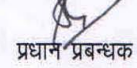 प्रधान प्रबन्धक